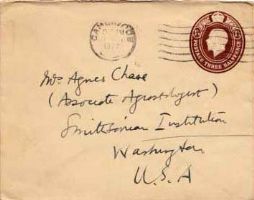 CAMBRIDGE
POSTAGE THREE HALFPENCE
Mrs Agnes Chase
(Associate Agrostologist)
Smithsonian Institution
Washington
U.S.A